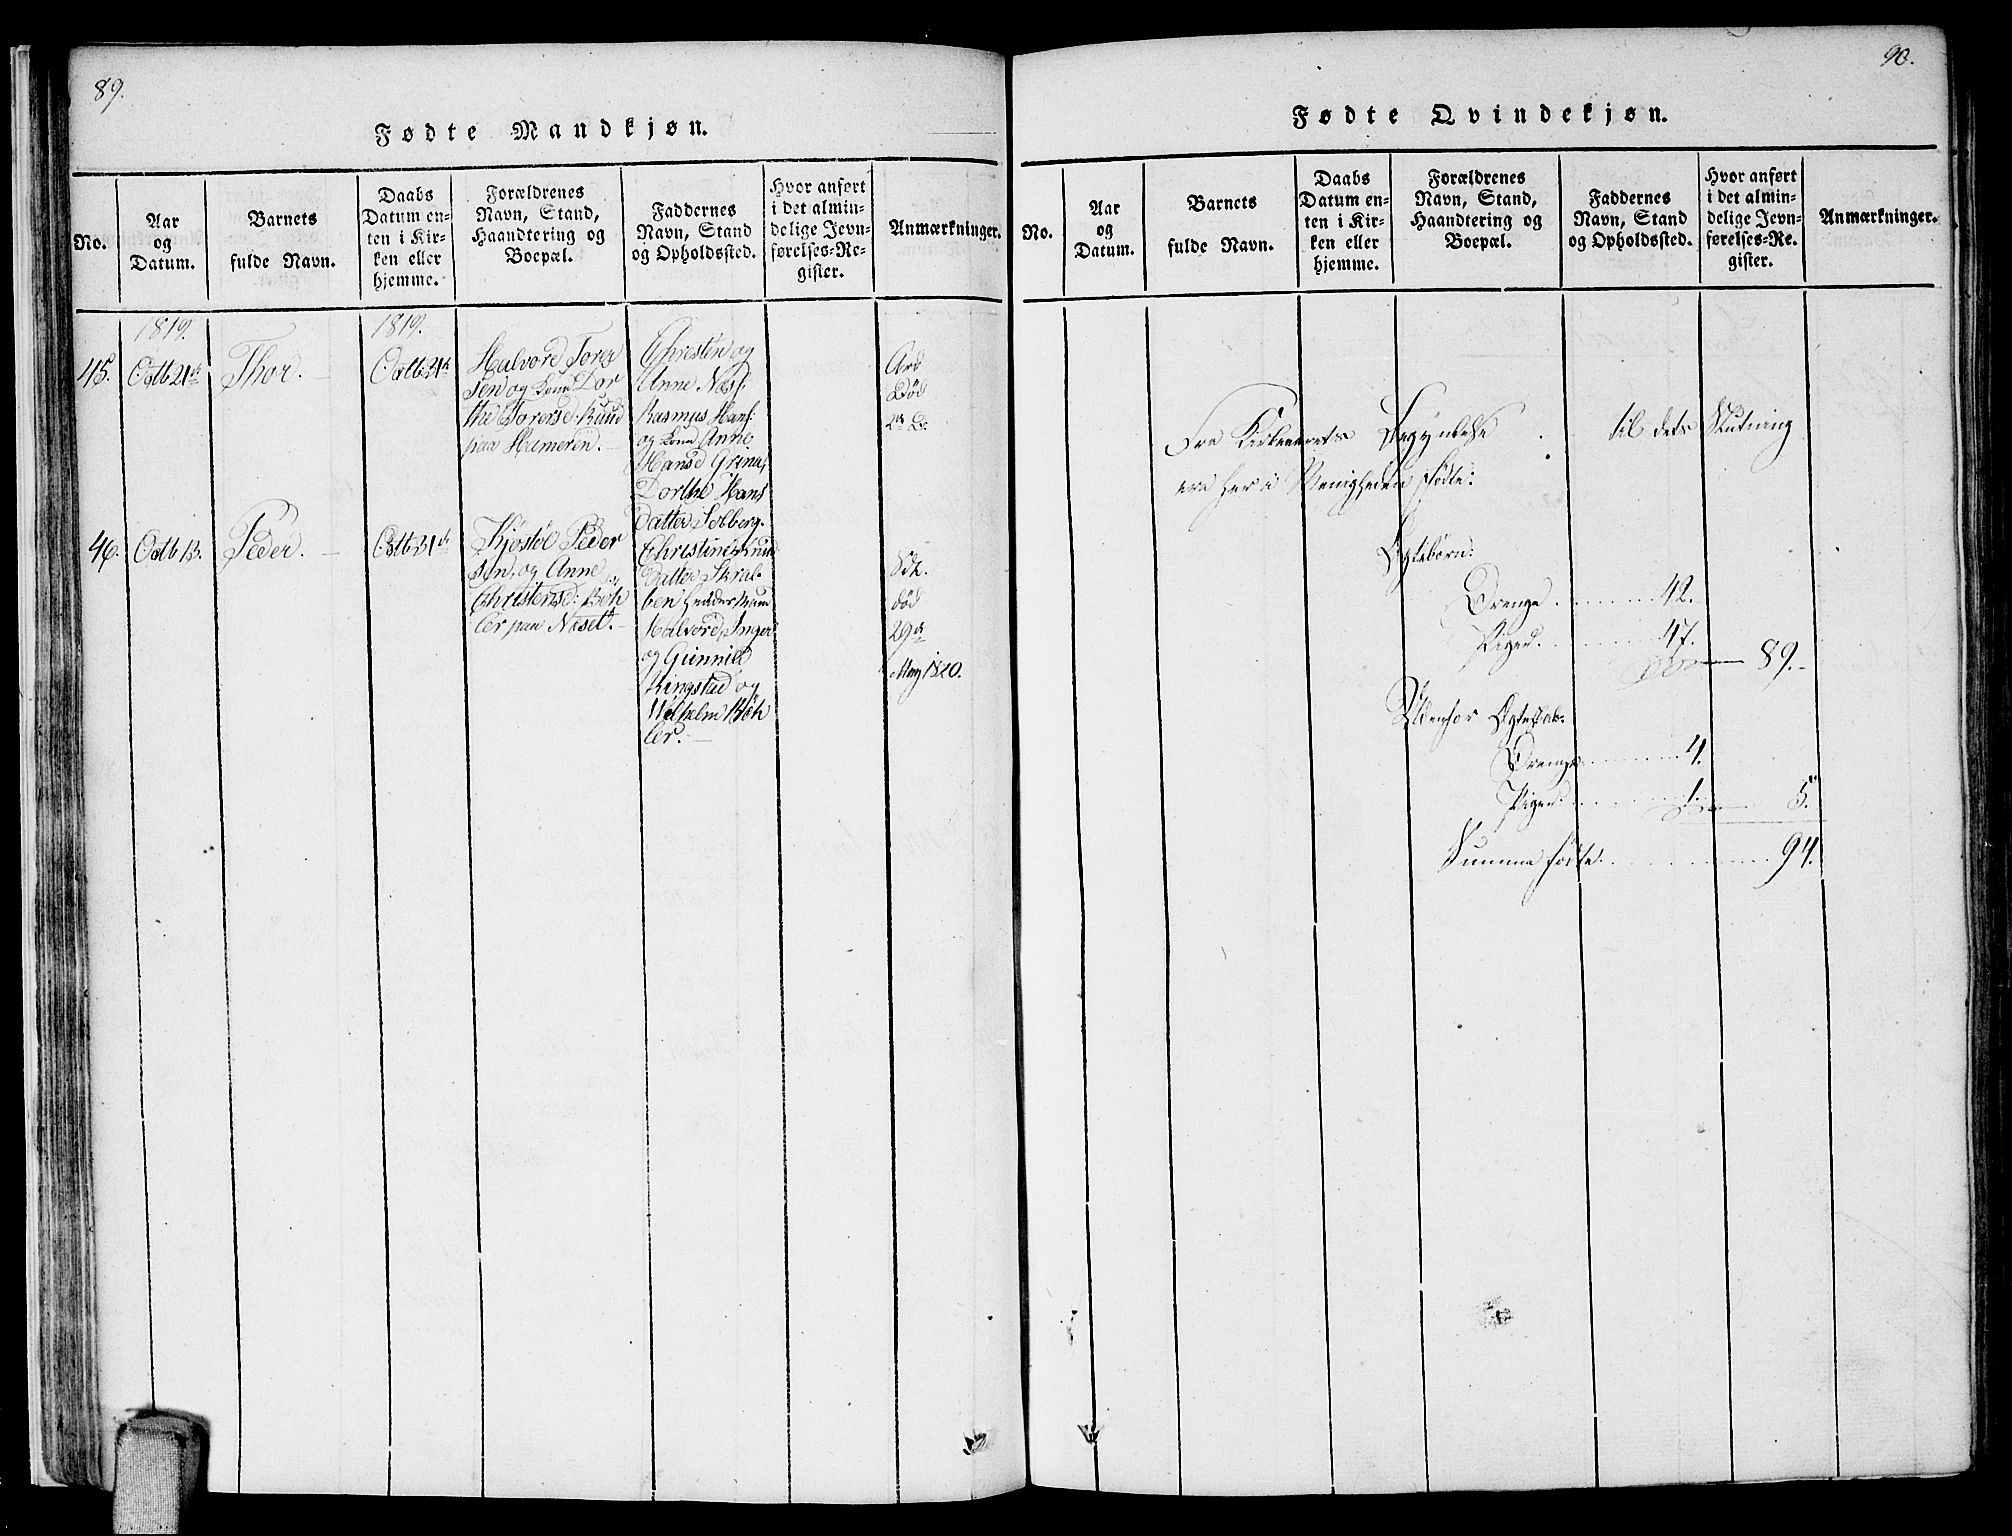 89.
Fødte Mandkjøn.
No.
Aar
og
Datum.
Barnets
fulde Navn.
Daabs
Datum en-
ten i Kir-
ken eller
hjemme.
Forældrenes
Navn, Stand,
Haandtering og
Boepæl.
Faddernes
Navn, Stand
og Opholdssted.
Hvor anført
i det almin-
delige Jevn-
førelses-Re-
gister.
Anmærkninger.
1819.
45.
Octb 21de
Thor.
1819.
Octb 31te
Halvord Torer
sen og Kone Dor
the Torersd.
paa Hameren.
Christen og
Anne Næss,
Rasmus Hans.
og Kone Anne
Hansd Grina,
Dorthe Hans
Datter Solberg.
Død
46.
Octb 13.
Peder.
Octb 31te
Kjøstol Peder
sen, og Anne
Christensd: Böh
ler paa Næset.
Christine Knud
Datter Skral-
ben
Halvord, Inger
og Gunnild
Ringstad og
Wilhelm Böh
ler.
død
29de
May 1820.
90.
Fødte Qvindekjøn.
No.
Aar
og
Datum.
Barnets
fulde Navn.
Daabs
Datum en-
ten i Kir-
ken eller
hjemme.
Forældrenes
Navn, Stand,
Haandtering og
Boepæl.
Faddernes
Navn, Stand
og Opholdssted.
Hvor anført
i det almin-
delige Jevn-
førelses-Re-
gister.
Anmærkninger.
Fra Kirkeaarets Begyndelse til dets Slutning
ere her i Menigheden fødte:
Ægtebörn:
Drenge . . . . . . . 42.
Piger. . . . . . . 47.
89.
Udenfor Ægteskab:
Drenge . . . . . . . 4.
Piger. . . . . . . 1.
5.
Summa fødte. . . . . . . . . . 94.